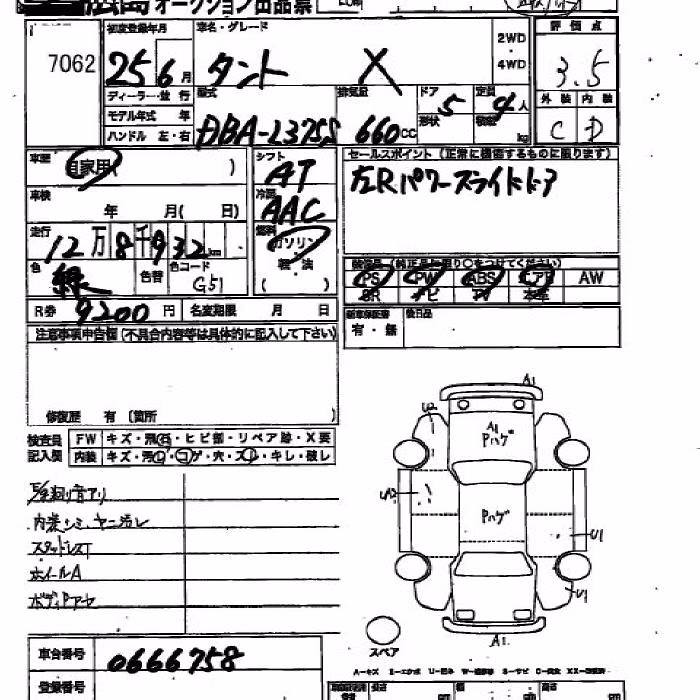 広島オークション出品票
7062
初度登録年月
25年6月
車名・グレード
タント X
2WD・4WD
評価点
3.5
外装 内装
C D
ディーラー・並行
モデル年式 年
ハンドル 左・右
型式
DBA-L375S
排気量
660cc
ドア 5
形状
定員 4人
積載 kg
車歴
自家用( )
車検
年 月( 日)
シフト
AT
冷房
AAC
セールスポイント(正常に機能するものに限ります)
左Rパワースライドドア
走行
12万8千932km
燃料
ガソリン
軽・油
( )
色
緑
色替
色コード
G51
装備品(純正品に限り○をつけてください)
PS PW ABS エアB AW
SR ナビ TV 本革
R券 9200円
名変期限 月 日
新車保証書
有・無
後日品
注意事項申告欄(不具合内容等は具体的に記入して下さい)
修復歴 有(箇所
検査員記入欄
FW キズ・飛石・ヒビ割・リペア跡・X要
内装 キズ・汚レ・コゲ・穴・スレ・キレ・破レ
内装シミ、ヤニ汚レ
スタッドレスT
ホイールA
A1
U2
A1
Pハゲ
UA2
Pハゲ
U1
U1
A1
スペア
A-キズ E-エクボ U-凹み W-補修跡 S-サビ C-腐食 XX-交換済
車台番号 0666758
登録番号
長さ 幅 高さ